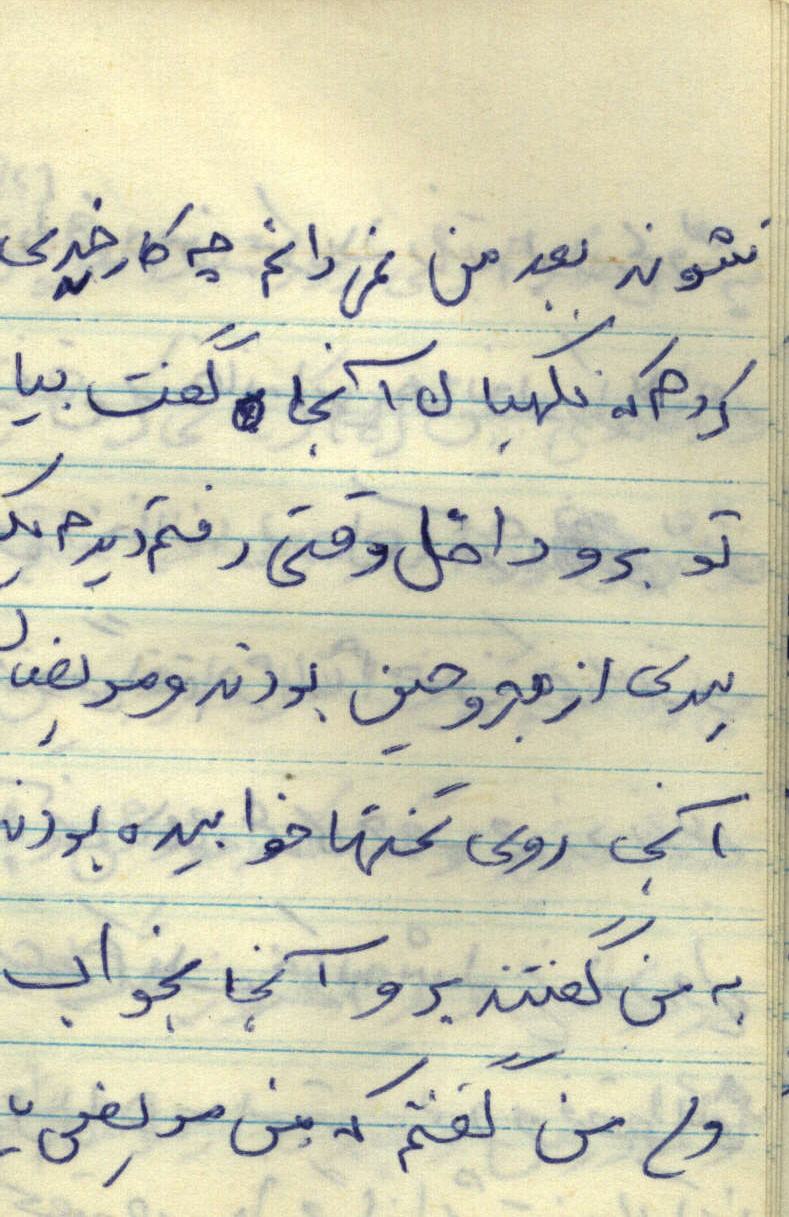 نشوند بعد من نمی دانم چه کار خیری
کردم که نگهبان آنجا گفت بیا
تو برو داخل وقتی رفتم دیدم یک
سری از مجروحین بودند و مریضان
آنجا روی تختها خوابیده بودن
به من گفتند برو آنجا بخواب
ولی من گفتم که من مریض